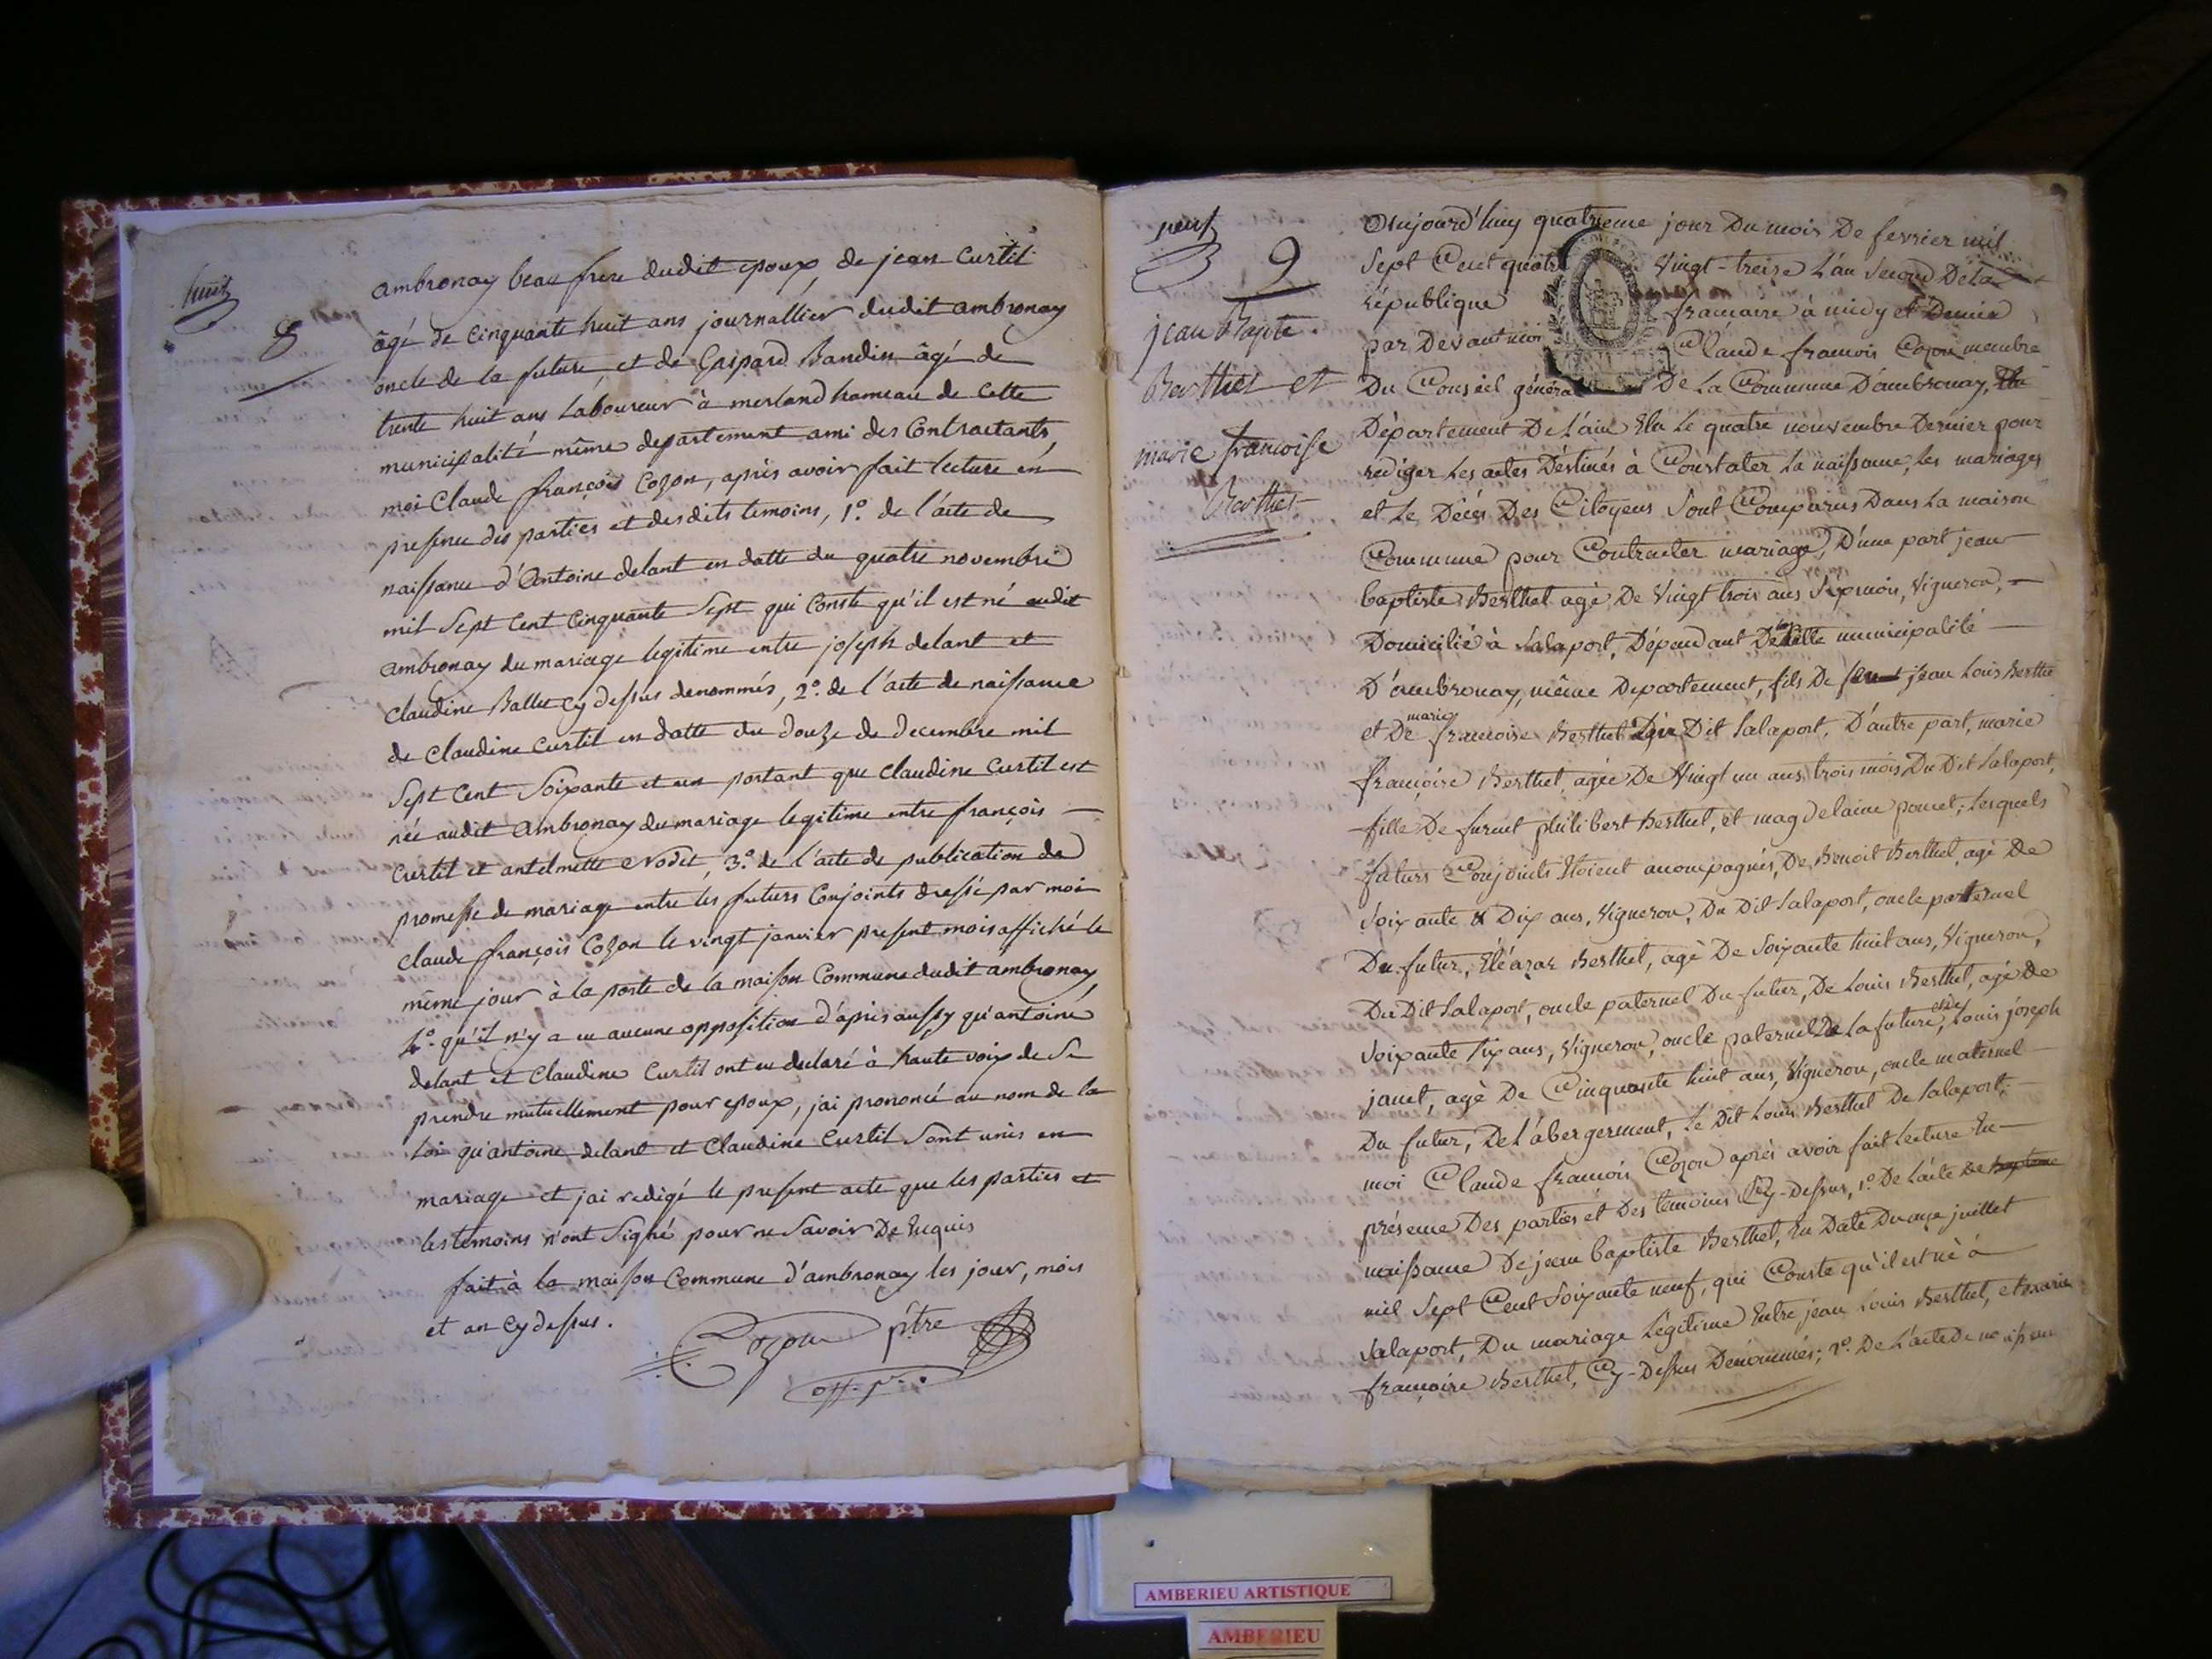 huit
8
ambronay beau frere dudit epoux, de jean Curtil
âgé de cinquante huit ans journallier dudit ambronay
oncle de la future, et de Gaspard Bandin âgé de
trente huit ans Laboureur à merland hameau de Cette
municipalité même departement ami des Contractants,
moi Claude françois Cozon, après avoir fait lecture en
presence des parties et desdits temoins, 1.º de l'acte de
naissance d'antoine delant en datte du quatre novembre
mil Sept Cent Cinquante Sept qui Conste qu'il est né audit
ambronay du mariage legitime entre joseph delant et
Claudine Ballet cy dessus denommés, 2.º de l'acte de naissance
de Claudine Curtil en datte du douze de decembre mil
Sept Cent Soixante et un portant que Claudine Curtil est
née audit ambronay du mariage legitime entre françois
Curtil et antelmette Nodet, 3.º de l'acte de publication de
promesse de mariage entre les futurs Conjoints dressé par moi
Claude françois Cozon le vingt janvier present mois affiché le
même jour à la porte de la maison Commune dudit ambronay,
4.º qu'il n'y a eu aucune opposition d'après aussy qu'antoine
delant et Claudine Curtil ont eu declaré à haute voix de Se
prendre mutuellement pour epoux, j'ai prononcé au nom de la
Loi qu'antoine delant et Claudine Curtil Sont unis en
mariage et j'ai redigé le present acte que les parties et
les temoins n'ont Signé pour ne Savoir De Enquis
fait à la maison Commune d'ambronay les jour, mois
et an cy dessus.
Cozon ptre
off. p.
neuf
9
jean Bapte
Berthet et
marie francoise
Berthet
Aujourd'huy quatrieme jour Du mois De fevrier mil
Sept Cent quatre Vingt-treize L'an Second De La
république francaise à midy et Demie
par Devant moi Claude francois Cozon membre
Du Conseil général De La Commune D'ambronay,
Département De L'ain Elu Le quatre nouvembre Dernier pour
rediger Les actes Déstinés à Constater La naissance, Les mariages
et Le Décès Des Citoyens Sont Comparus Dans La maison
Commune pour Contracter mariage, D'une part jean
baptiste Berthet agé De Vingt trois ans Sept mois, Vigneron,
Domicilié à Salaport, Dépendant De Cette municipalité
D'ambronay, même Departement, fils De jean Louis Berthet
et De marie francoise Berthet Du Dit Salaport, D'autre part, marie
françoise Berthet, agée De Vingt un ans trois mois Du Dit Salaport,
fille De furent philibert Berthet, et magdelaine poncet; Lesquels
futurs Conjoints Etoient accompagnés, De Benoit Berthet, agé De
Soixante & Dix ans, Vigneron, Du Dit Salaport, oncle paternel
Du futur, Eléazar Berthet, agé De Soixante huit ans, Vigneron,
Du Dit Salaport, oncle paternel Du futur, De Louis Berthet, agé de
Soixante Six ans, Vigneron, oncle paternel De La future, et De Louis joseph
janet, agé De Cinquante huit ans, Vigneron, oncle maternel
Du futur, De L'abergement, Le Dit Louis Berthet De Salaport;
moi Claude francois Cozon après avoir fait Lecture En
présence Des parties et Des temoins Cy-Dessus, 1.º De L'acte De
naissance De jean baptiste Berthet, En Date Du onze juillet
mil Sept Cent Soixante neuf, qui Conste qu'il est né à
Salaport, Du mariage Légitime Entre jean Louis Berthet, et marie
françoise Berthet, Cy-Dessus Denommés; 2.º De L'acte De naissance
AMBERIEU ARTISTIQUE
AMBERIEU